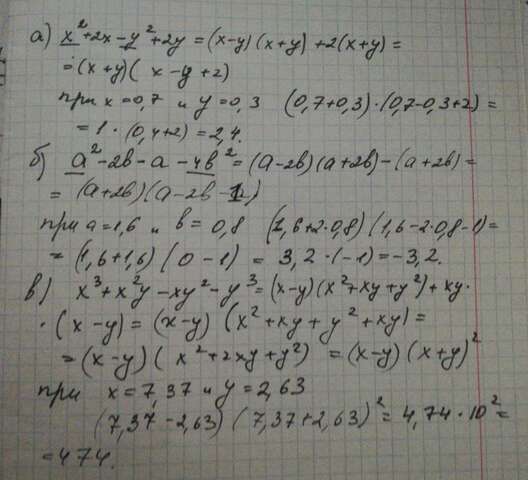 а) x²+2x-y²+2y=(x-y)(x+y)+2(x+y)=
=(x+y)(x-y+2)
при x=0,7 и y=0,3 (0,7+0,3)·(0,7-0,3+2)=
=1·(0,4+2)=2,4.
б) a²-2b-a-4b²=(a-2b)(a+2b)-(a+2b)=
=(a+2b)(a-2b-1)
при a=1,6 и b=0,8 (1,6+2·0,8)(1,6-2·0,8-1)=
=(1,6+1,6)(0-1)=3,2·(-1)=-3,2.
в) x³+x²y-xy²-y³=(x-y)(x²+xy+y²)+xy·
·(x-y)=(x-y)(x²+xy+y²+xy)=
=(x-y)(x²+2xy+y²)=(x-y)(x+y)²
при x=7,37 и y=2,63
(7,37-2,63)(7,37+2,63)²=4,74·10²=
=474.